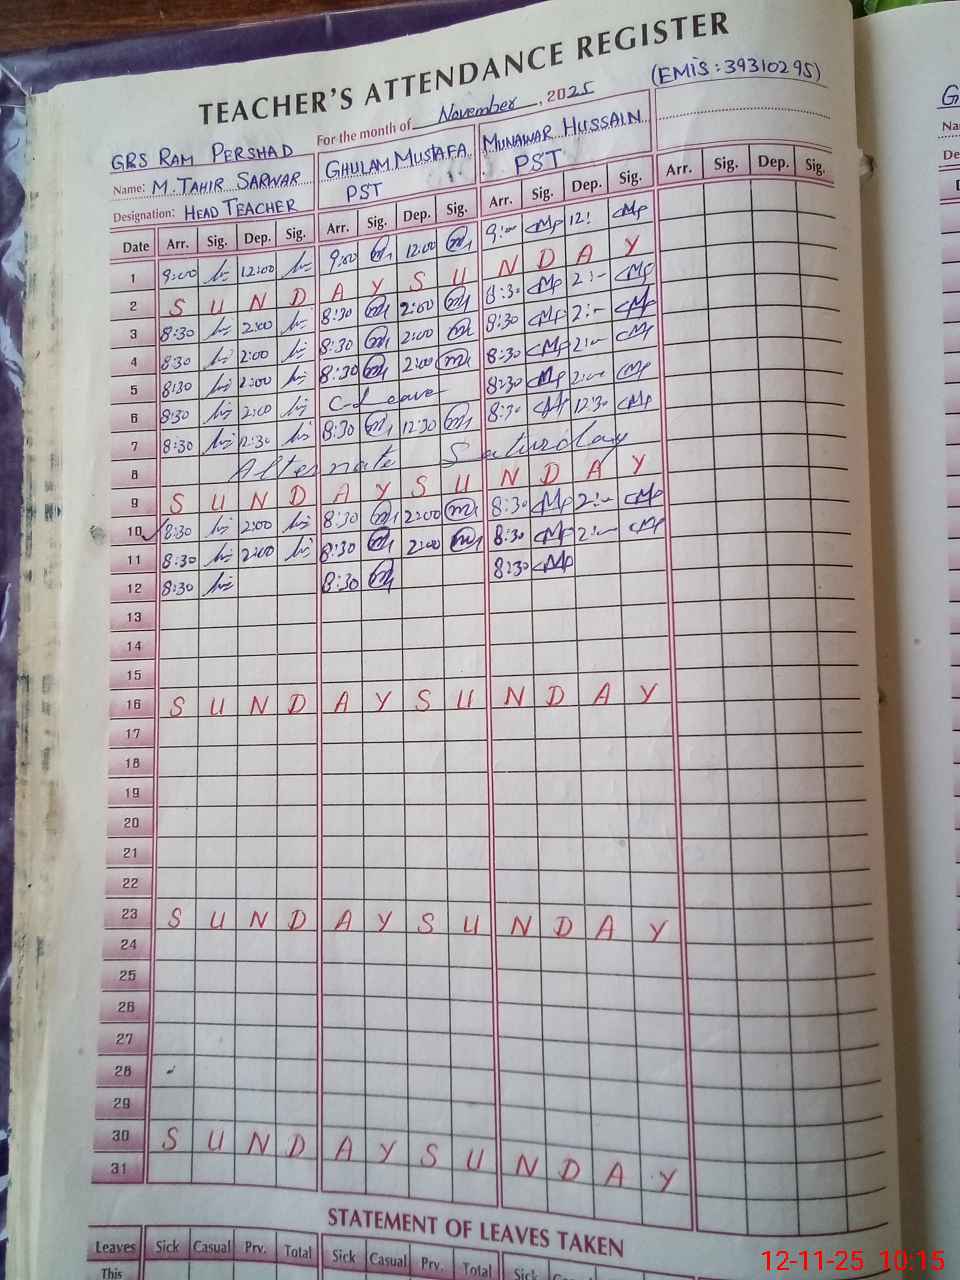 TEACHER'S ATTENDANCE REGISTER
(EMIS: 39310295)
For the month of November, 2025
GRS RAM PERSHAD
Name: M. TAHIR SARWAR GHULAM MUSTAFA MUNAWAR HUSSAIN
Designation: HEAD TEACHER PST PST
Date Arr. Sig. Dep. Sig. Arr. Sig. Dep. Sig. Arr. Sig. Dep. Sig. Arr. Sig. Dep. Sig.
1 9:00 12:00 9:00 12:00 9:— 12:
2 S U N D A Y S U N D A Y
3 8:30 2:00 8:30 2:00 8:30 2:—
4 8:30 2:00 8:30 2:00 8:30 2:—
5 8:30 2:00 8:30 2:00 8:30 2:—
6 8:30 2:00 C-Leave 8:30 2:—
7 8:30 12:30 8:30 12:30 8:30 12:30
8 Alternate Saturday
9 S U N D A Y S U N D A Y
10 8:30 2:00 8:30 2:00 8:30 2:—
11 8:30 2:00 8:30 2:00 8:30 2:—
12 8:30 8:30 8:30
13
14
15
16 S U N D A Y S U N D A Y
17
18
19
20
21
22
23 S U N D A Y S U N D A Y
24
25
26
27
28
29
30 S U N D A Y S U N D A Y
31
STATEMENT OF LEAVES TAKEN
Leaves Sick Casual Prv. Total Sick Casual Prv. Total Sick
This
12-11-25 10:15